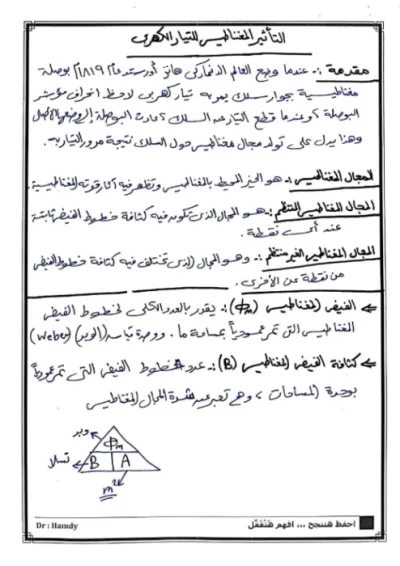 التأثير المغناطيسى للتيار الكهربى
مقدمة :- عندما وضع العالم الدنماركى هانز أورستد عام ١٨١٩م بوصلة
مغناطيسية بجوار سلك يمر به تيار كهربى لاحظ انحراف مؤشر
البوصلة، وعندما قطع التيار عن السلك عادت البوصلة إلى وضعها الأصلى
وهذا يدل على تولد مجال مغناطيسى حول السلك نتيجة مرور التيار به.
المجال المغناطيسى :- هو الحيز المحيط بالمغناطيس وتظهر فيه آثار قوته المغناطيسية.
المجال المغناطيسى المنتظم :- هو المجال الذى تكون فيه كثافة خطوط الفيض ثابتة
عند أى نقطة.
المجال المغناطيسى الغير منتظم :- وهو المجال الذى تختلف فيه كثافة خطوط الفيض
من نقطة عن الأخرى.
الفيض المغناطيسى (Φm) :- يقدر بالعدد الكلى لخطوط الفيض
المغناطيسى التى تمر عمودياً بمساحة ما. ووحدة قياسه (الوبر) (Weber)
كثافة الفيض المغناطيسى (B) :- عدد خطوط الفيض التى تمر عمودياً
بوحدة المساحات، وهى تعبر عن شدة المجال المغناطيسى
وبر
Φm
تسلا B A
m²
Dr : Hamdy احفظ هتنجح ... افهم هتتفَّل